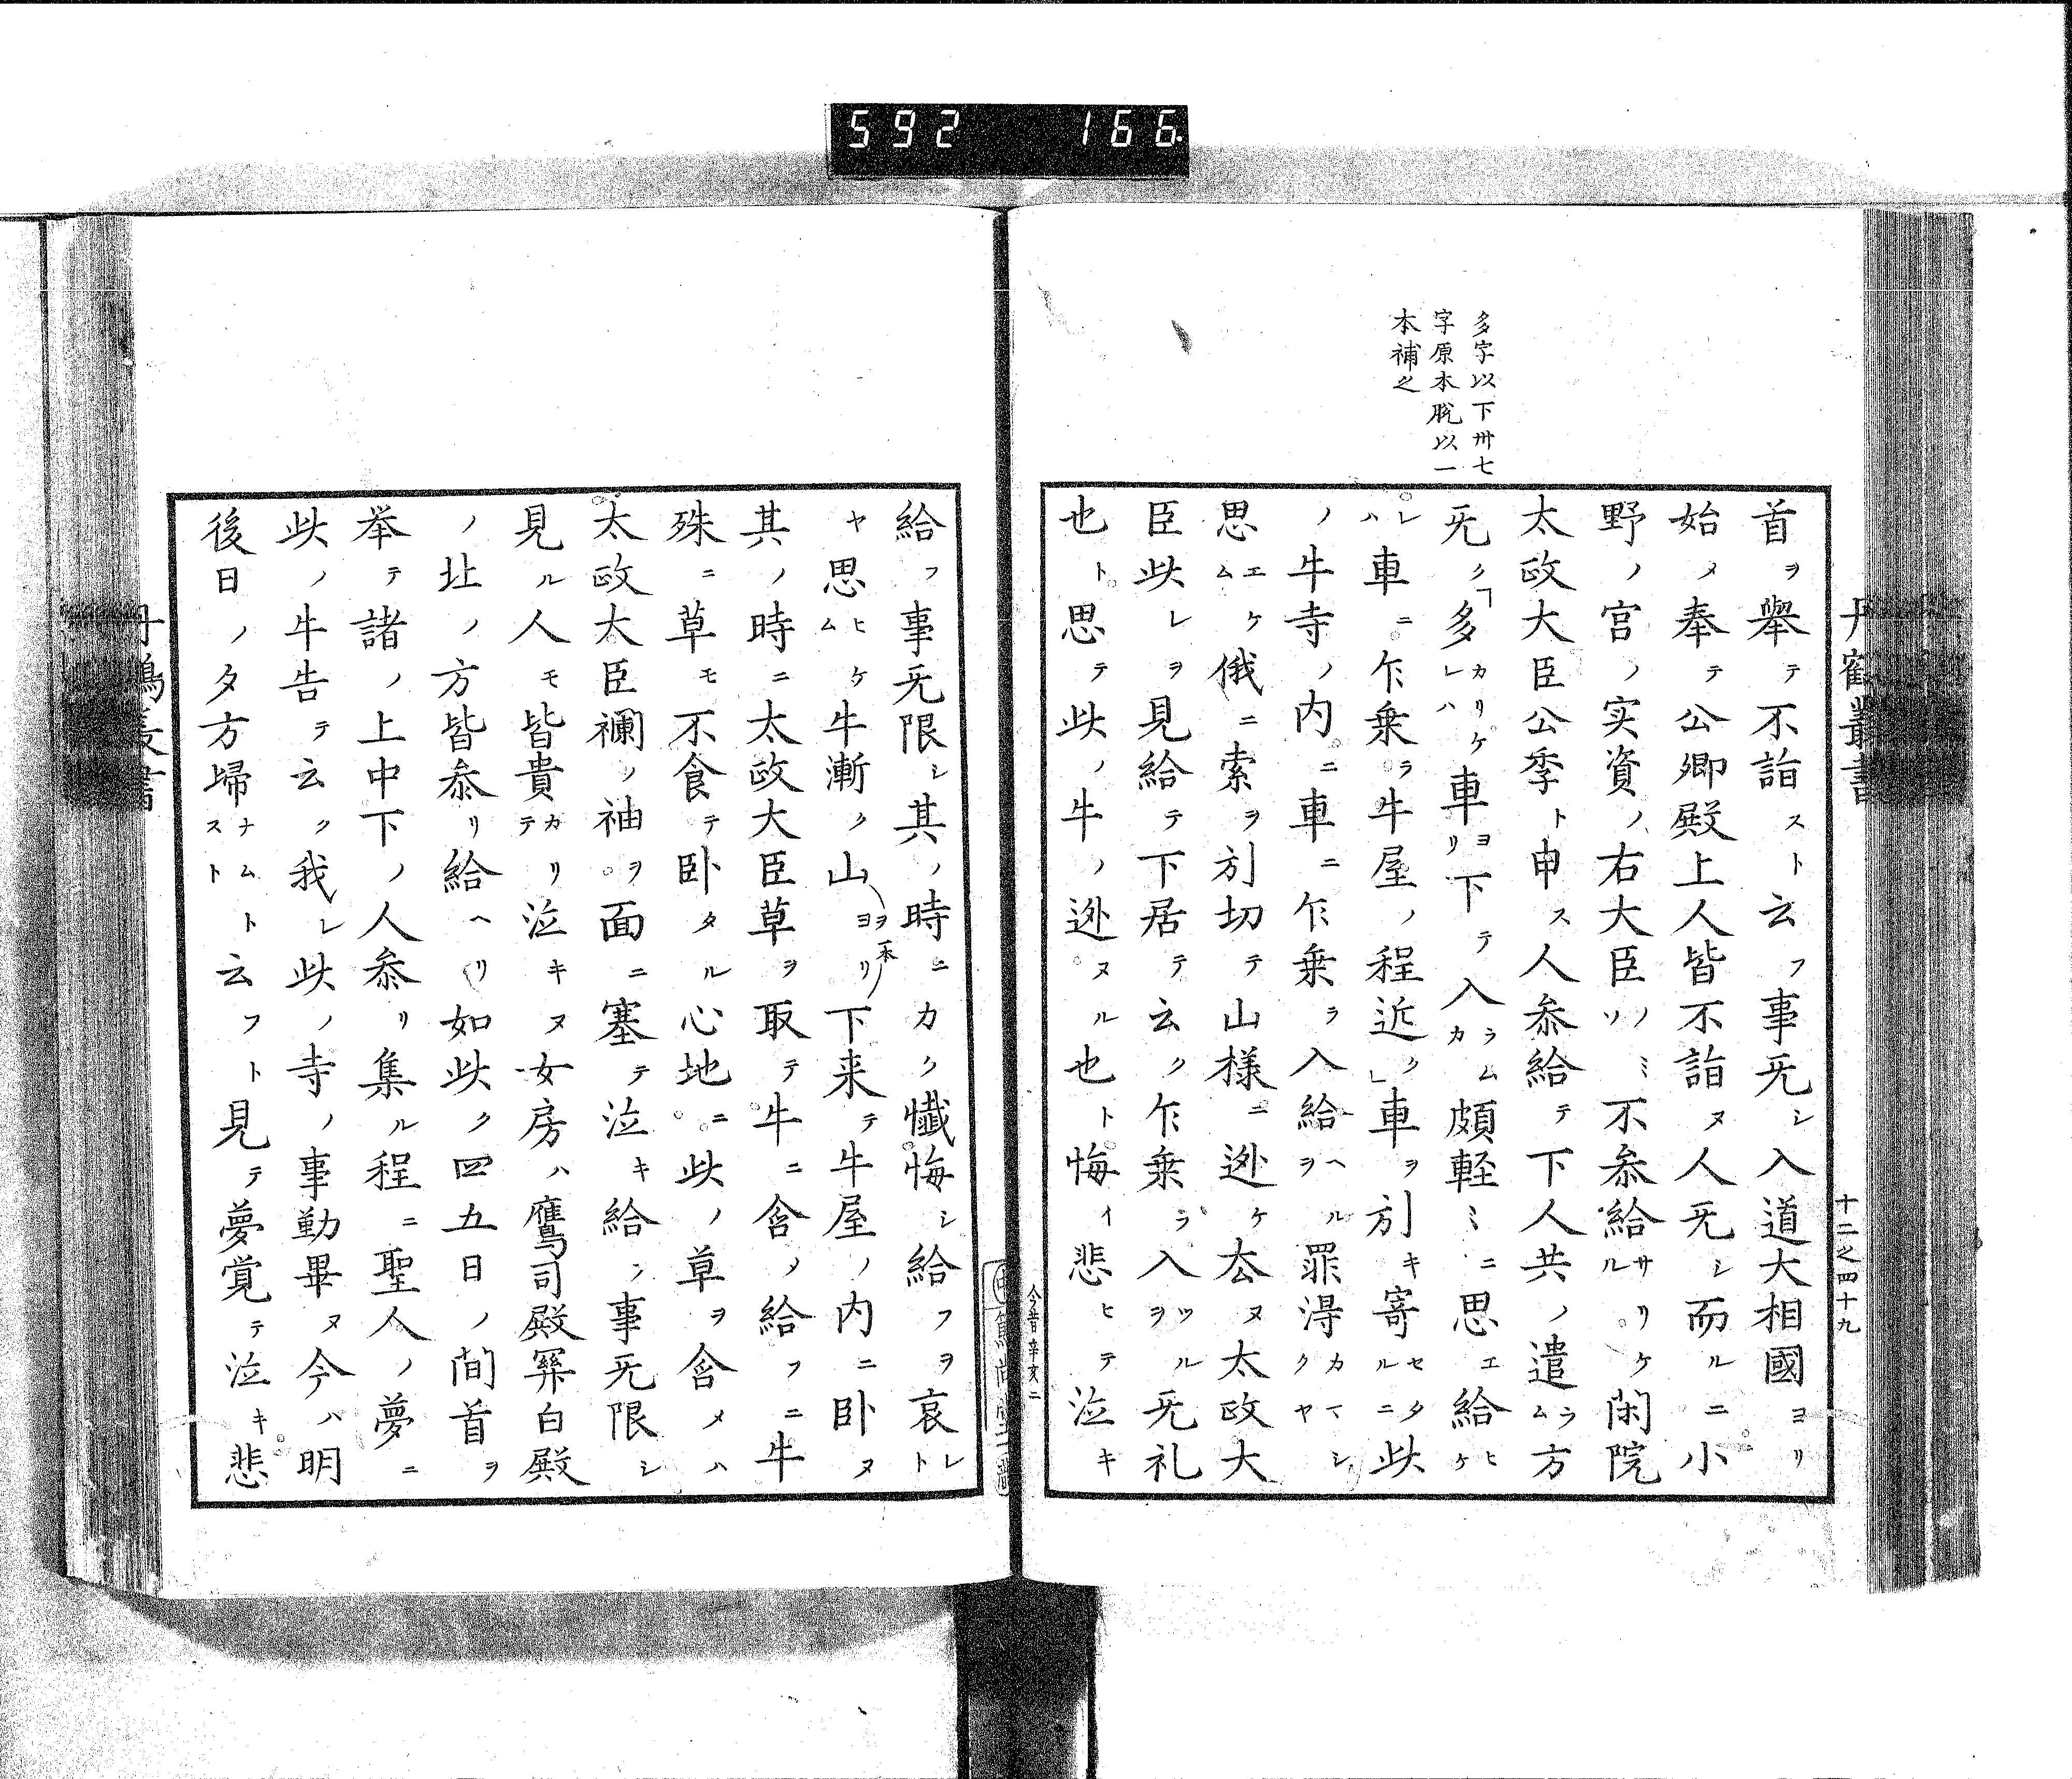 592 166
多字以下卅七
字原本脱以一
本補之
丹鶴叢書
十二之四十九
首ヲ擧テ不詣ストト云フ事旡シ入道大相國ヨリ
始メ奉テ公卿殿上人皆不詣ヌ人旡シ而ルニ小
野ノ宮ノ実資ノ右大臣ノミソ不叅給サリケル閑院
太政大臣公季ト申ス人叅給テ下人共ノ遣ラム方
旡ク「多カリケレハ車ヨリ下テ入ラムカ頗軽ミニ思エ給ヒケ
レハ車ニ乍乗ラ牛屋ノ程近」ク車ヲ引キ寄セタルニ此
ノ牛寺ノ内ニ車ニ乍乗ラ入給ヘルヲ罪淂カマシクヤ
思エケム俄ニ索ヲ引切テ山様ニ迯ケ去ヌ太政大
臣此レヲ見給テ下居テ云ク乍乗ラ入ツルヲ旡礼
也ト思テ此ノ牛ノ迯ヌル也ト悔イ悲ヒテ泣キ
今昔辛亥二
給フ事旡限シ其ノ時ニカク懴悔シ給フヲ哀レト
ヤ思ヒケム牛漸ク山ヨリ(ヲ一本)下来テ牛屋ノ内ニ卧ヌ
其ノ時ニ太政大臣草ヲ取テ牛ニ含メ給フニ牛
殊ニ草モ不食テ卧タル心地ニ此ノ草ヲ含メハ
太政大臣襴ノ袖ヲ面ニ塞テ泣キ給フ事旡限シ
見ル人モ皆貴カリテ泣キヌ女房ハ鷹司殿関白殿
ノ北ノ方皆叅リ給ヘリ如此ク四五日ノ間首ヲ
挙テ諸ノ上中下ノ人叅リ集ル程ニ聖人ノ夢ニ
此ノ牛告テ云ク我レ此ノ寺ノ事勤畢ヌ今ハ明
後日ノ夕方帰ナムストト云フト見テ夢覚テ泣キ悲